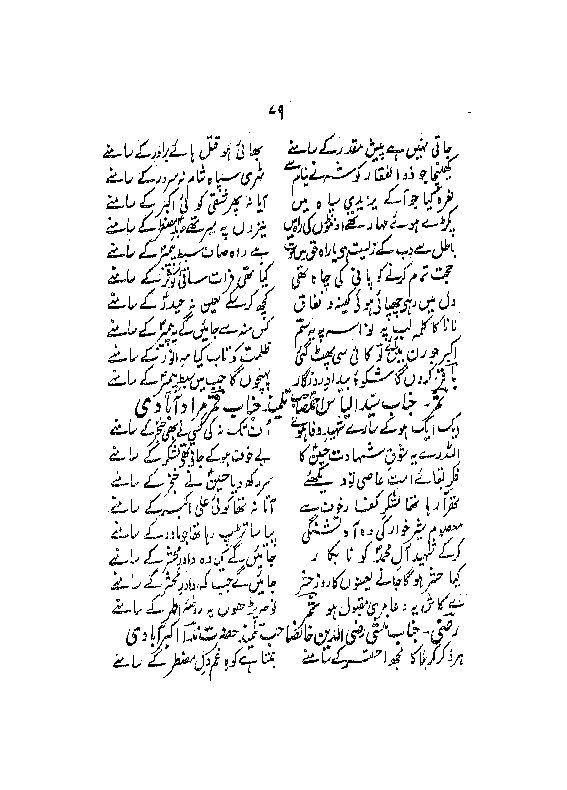 ۷۹
جاتی نہیں ہے پیش مقدر کے سامنے بھائی ہو قتل ہائے برادر کے سامنے
کھینچا جو ذوالفقار کو شہ نے نیام سے سپاہ شام نہ سرور کے سامنے
نعرہ کیا جو آ کے یزیدی سپاہ میں آیا نہ پھر شقی کوئی اکبر کے سامنے
پکڑے ہوئے مہار تھے اونٹوں کی راہ میں نیزوں پہ سر تھے عابد مضطر کے سامنے
باطل سے دب کے زیست ہی یا راہ حق میں موت ہے راہ صاف سبط پیمبر کے سامنے
حجت تمام کرنے کو پانی کی چاہ تھی کیا تھی فرات ساقی کوثر کے سامنے
دل میں رہی چھپائی ہوئی کینہ و نفاق کچھ کر سکے لعین نہ حیدر کے سامنے
نانا کا کلمہ لب پہ نواسہ پہ یہ ستم کس منہ سے جائیں گے یہ پیمبر کے سامنے
اکبر جو رن میں پہنچے تو کائی سی پھٹ گئی ظلمت کو تاب کیا مہ انور کے سامنے
باقر کروں گا شکوۂ بیداد روزگار پہنچوں گا جب میں سبط پیمبر کے سامنے
جناب سید الیاس تلمیذ جناب قمر مراد آبادی
ایک ایک ہو کے سارے شہید وفا ہوئے اف تک نہ کی کسی نے بھی خنجر کے سامنے
اللہ رے یہ شوق شہادت حسین کا بے خوف ہو کے جاتے تھے لشکر کے سامنے
فکر بقائے امت عاصی تو دیکھئے سر رکھ دیا حسین نے خنجر کے سامنے
تھا لشکر کفار خوف سے آتا نہ تھا کوئی علی اکبر کے سامنے
معصوم شیر خوار کی وہ آہ تشنگی پیاسا تڑپ رہا تھا جو مادر کے سامنے
کر کے شہید آل محمد کو نابکار جائیں گے کیسے داور محشر کے سامنے
کیا حشر ہو گا جانے لعینوں کا روز حشر جائیں گے جب کہ داور محشر کے سامنے
اے کاش یہ دعا مری مقبول ہو قمر نوحہ پڑھوں یہ روضۂ اطہر کے سامنے
رضی۔ جناب منشی رضی الدین خاں صاحب تلمیذ حضرت اکبر آبادی
ہر ذکر کربلا کا کے سامنے بنتا ہے کوہ غم دل مضطر کے سامنے